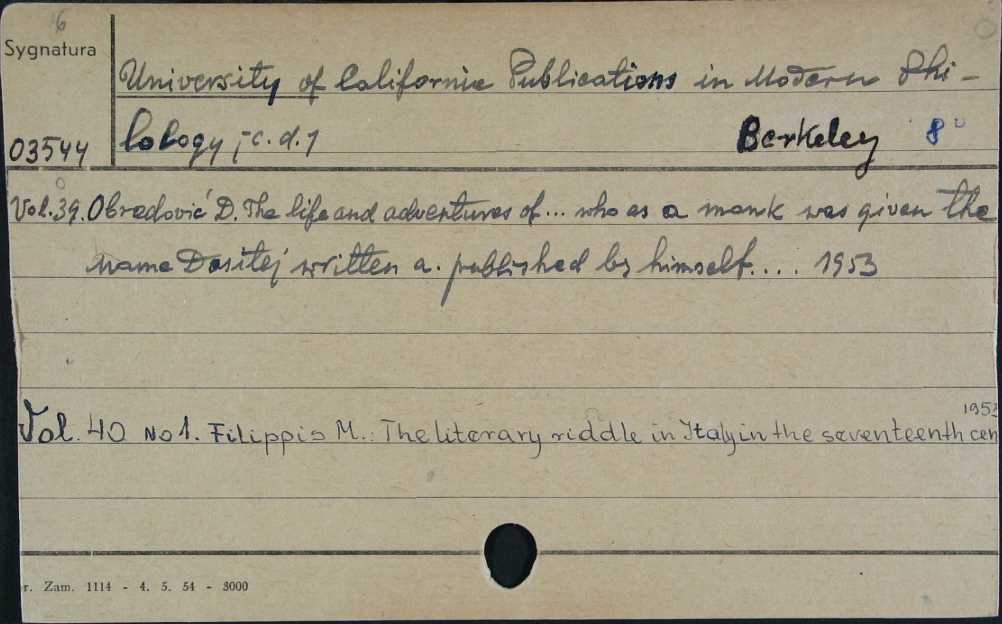 6
Sygnatura
University of California Publications in Modern Phi-
03544 lology ; - c.d. 1 Berkeley 8°
Vol. 39. Obradović D. The life and adventures of... who as a monk was given the
name Dositej written a. published by himself.... 1953
1953
Vol. 40 No 1. Filippis M.: The literary riddle in Italy in the seventeenth cen
r. Zam. 1114 - 4. 5. 54 - 3000